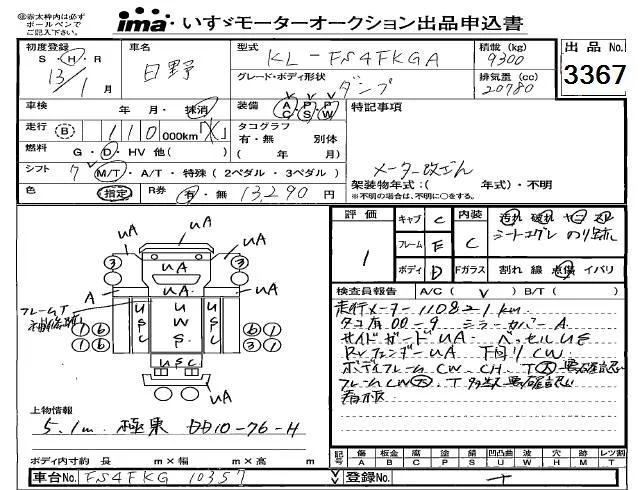 ※赤太枠内は必ずボールペンでご記入下さい。
ima いすゞモーターオークション出品申込書
初度登録 S・H・R 13/1 月
車名 日野
型式 KL-FS4FKGA
積載 (kg) 9300
出品 No. 3367
グレード・ボディ形状 ダンプ
排気量 (cc) 20780
車検 年・月・抹消
装備 AC・PS・PW
特記事項
走行 (B) 110 000km
タコグラフ 有・無 別体 ( 年 月)
燃料 G・D・HV 他( )
シフト 7 M/T・A/T・特殊 (2ペダル・3ペダル)
メーター改ざん
架装物年式:( 年式)・不明
※不明の場合は、不明に○をする。
色 指定 R券 有・無 13,290 円
評価 1
キャブ C 内装 C
フレーム E
ボディ D Fガラス 割れ 線 点傷 イバリ
シートコゲ のり跡
検査員報告 A/C( ∨ ) B/T( )
走行メーター110821km
タコ有00-9 ミラーカバーA
サイドガードUA ベッセルUE
RVフェンダーUA 下回りCW
ボディフレームCW、CH、T 大 要確認
フレームCW 大、T
看板
UA
UA UA
UA
3 3
A UA UA
フレームT
USC UWS USC
1 6 6 1
1 6 6 1
USC
UA UA
上物情報
5.1m 極東 DD10-76-H
ボディ内寸約 長 m×幅 m×高 m
記号 傷 A 板金 B 腐 C 塗 P 錆 S 凹凸曲 U 波 W 穴 H 跡 M レツ割 T
車台No. FS4FKG 10357
登録No.